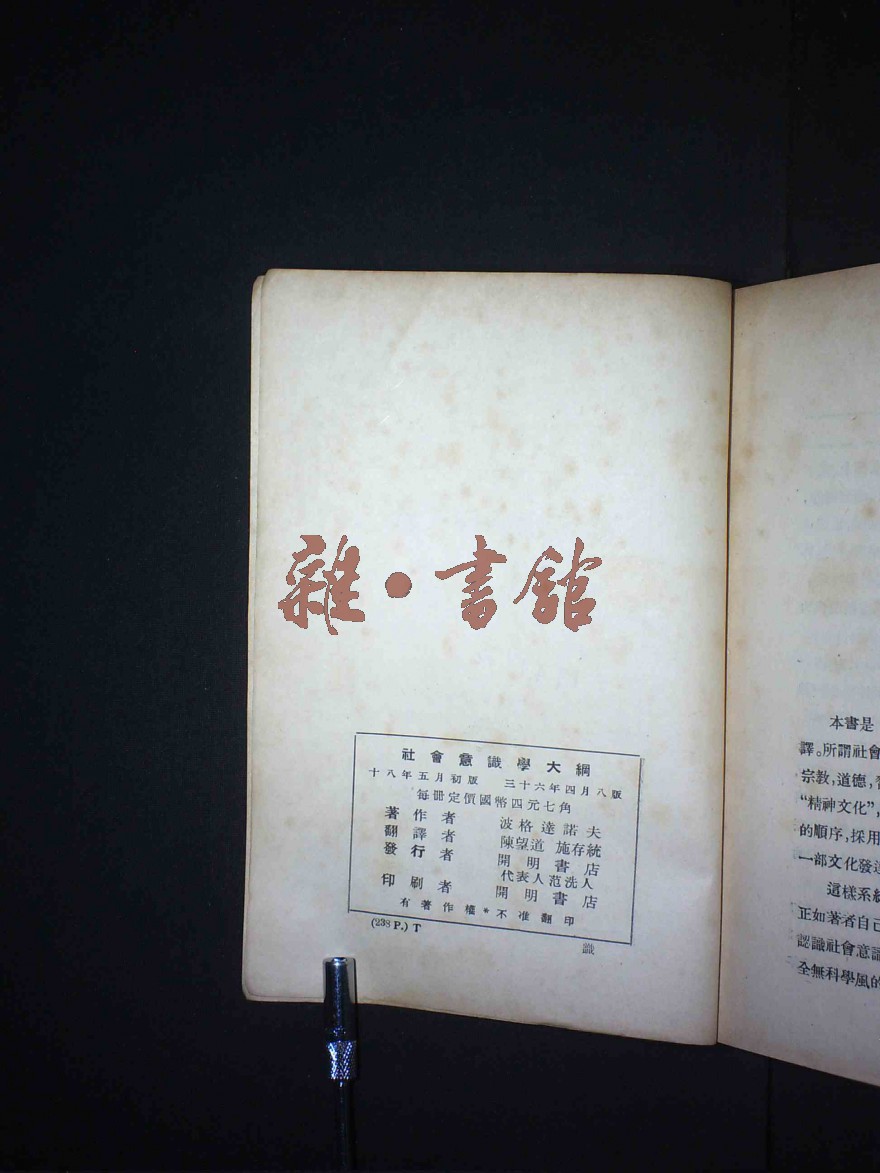 雜·書館
社會意識學大綱
十八年五月初版 三十六年四月八版
每冊定價國幣四元七角
著作者 波格達諾夫
翻譯者 陳望道 施存統
發行者 開明書店
代表人范洗人
印刷者 開明書店
有著作權*不准翻印
(238 P.) T
識
本書是
譯。所謂社會
宗教,道德,
“精神文化”,
的順序,採用
一部文化發達
這樣系統
正如著者自己
認識社會意識
全無科學風的